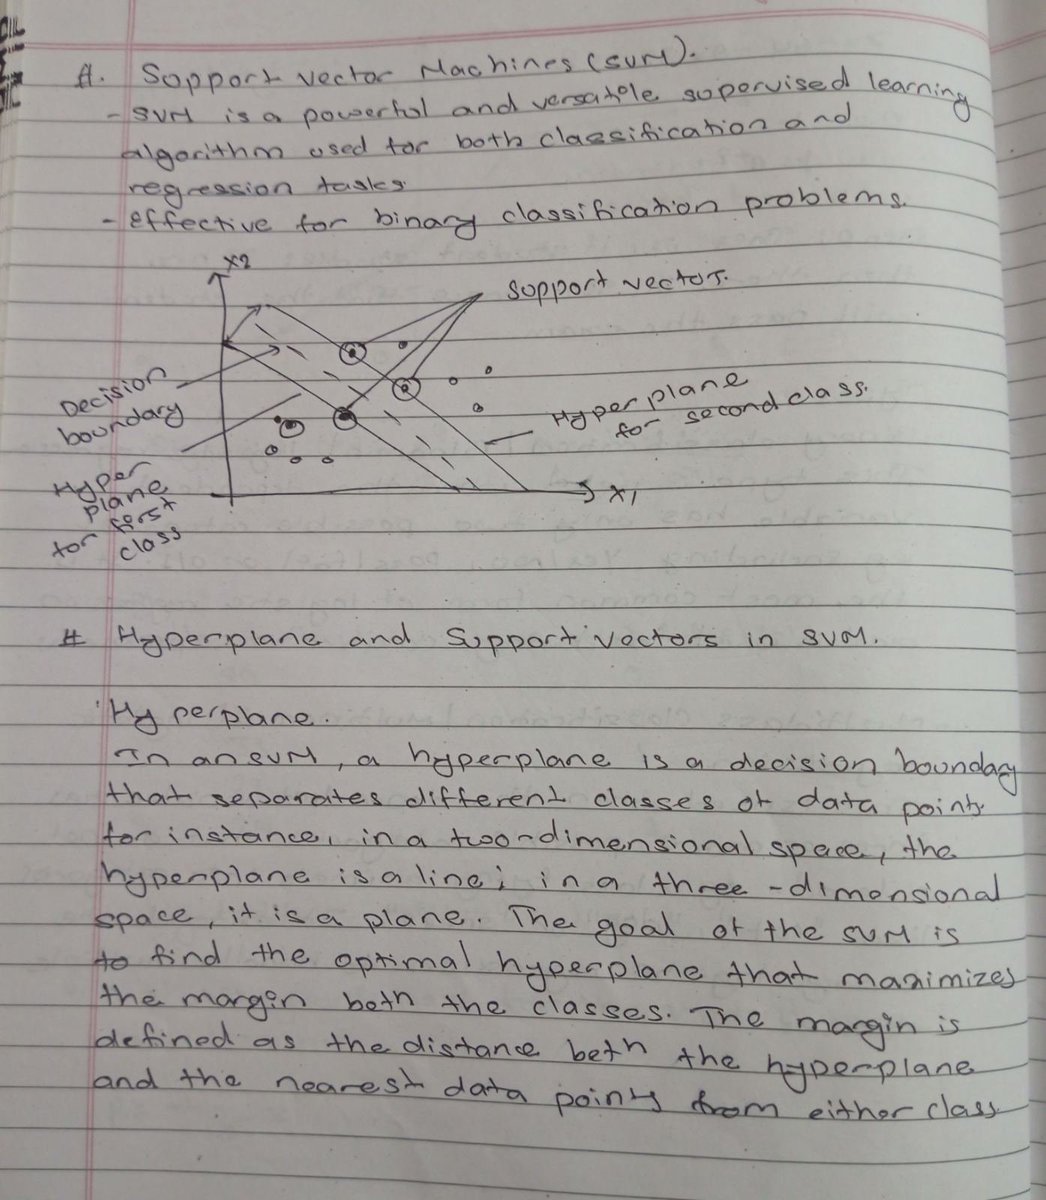 #. Support Vector Machines (SVM).
- SVM is a powerful and versatile supervised learning
algorithm used for both classification and
regression tasks.
- effective for binary classification problems.
x2
Support vectors.
Decision
boundary
Hyperplane
for second class.
Hyper
plane
for first
class
x1
# Hyperplane and Support Vectors in SVM.
Hyperplane.
In an SVM, a hyperplane is a decision boundary
that separates different classes of data points
for instance, in a two-dimensional space, the
hyperplane is a line; in a three-dimensional
space, it is a plane. The goal of the SVM is
to find the optimal hyperplane that maximizes
the margin beth the classes. The margin is
defined as the distance beth the hyperplane
and the nearest data points from either class